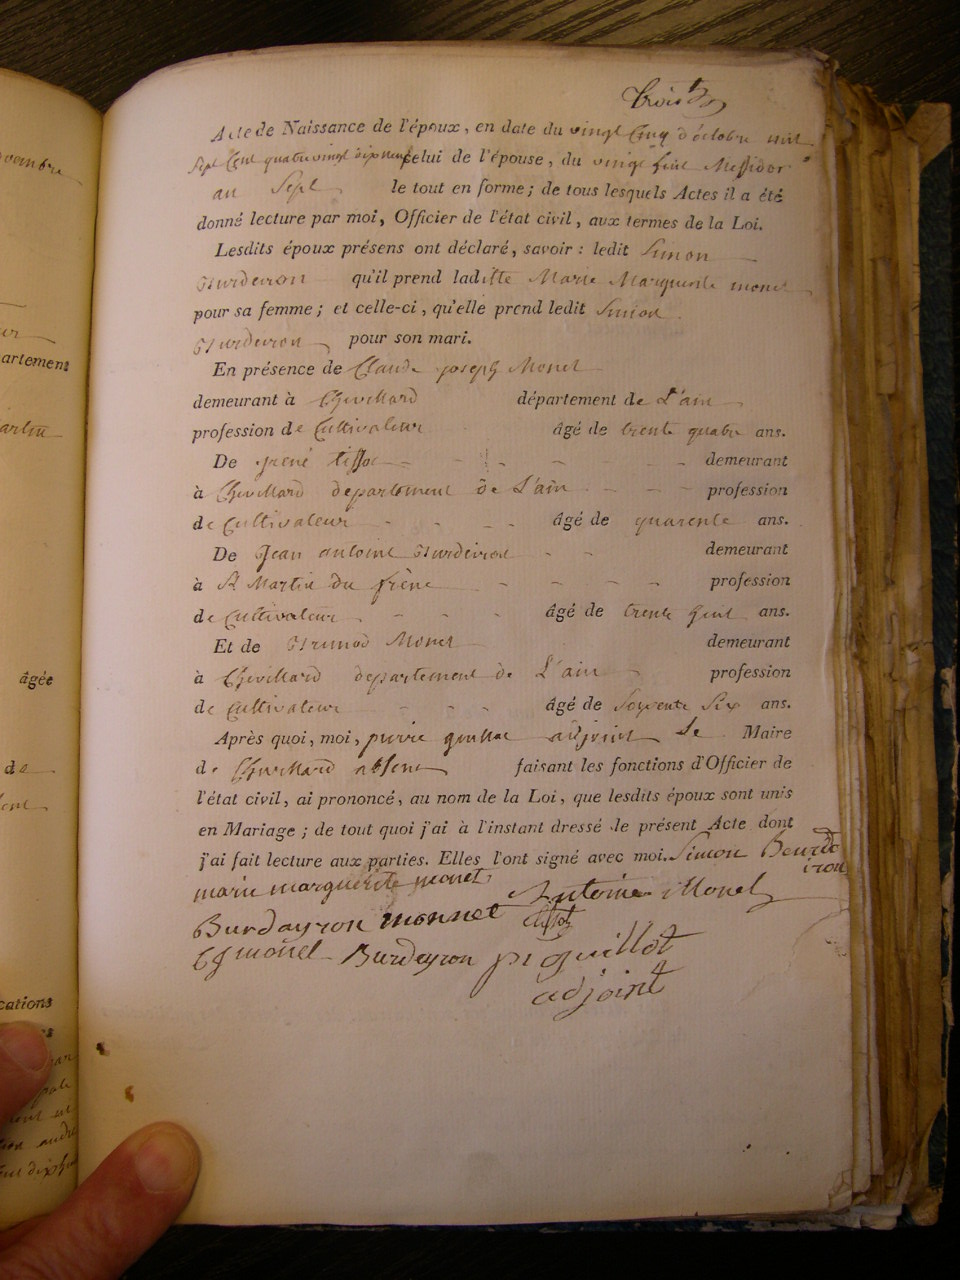 trois
Acte de Naissance de l'époux, en date du vingt Cinq d'éctobre mil
Sept Cent quatre vingt dix neuf celui de l'épouse, du vingt huit Messidor
an Sept le tout en forme; de tous lesquels Actes il a été
donné lecture par moi, Officier de l'état civil, aux termes de la Loi.
Lesdits époux présens ont déclaré, savoir : ledit Simon
Burdeiron qu'il prend ladite Marie Marguerite monet
pour sa femme; et celle-ci, qu'elle prend ledit Simon
Burdeiron pour son mari.
En présence de Claude joseph Monet
demeurant à Chevillard département de L'ain
profession de Cultivateur âgé de trente quatre ans.
De tissot demeurant
à Chevillard departement de L'ain profession
de Cultivateur âgé de quarente ans.
De Jean antoine Burdeiron demeurant
à St Martin du frène profession
de Cultivateur âgé de trente huit ans.
Et de Monet demeurant
à Chevillard departement de L'ain profession
de Cultivateur âgé de Soixente Six ans.
Après quoi, moi, pierre guillot adjoint Le Maire
de Chevillard absent faisant les fonctions d'Officier de
l'état civil, ai prononcé, au nom de la Loi, que lesdits époux sont unis
en Mariage; de tout quoi j'ai à l'instant dressé le présent Acte dont
j'ai fait lecture aux parties. Elles l'ont signé avec moi. Simon Beurde
iron
marie marguerite monet Antoine Monet
Burdayron monnet tissot
CJ monet Burdeyron pr guillot
adjoint
vembre
artement
artin
âgée
de
cations